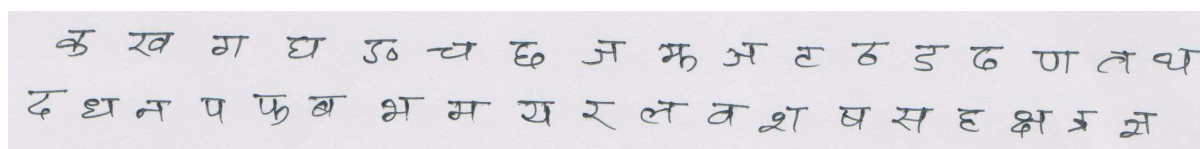 क ख ग घ ङ च छ ज झ ञ ट ठ ड ढ ण त थ
द ध न प फ ब भ म य र ल व श ष स ह क्ष त्र ज्ञ